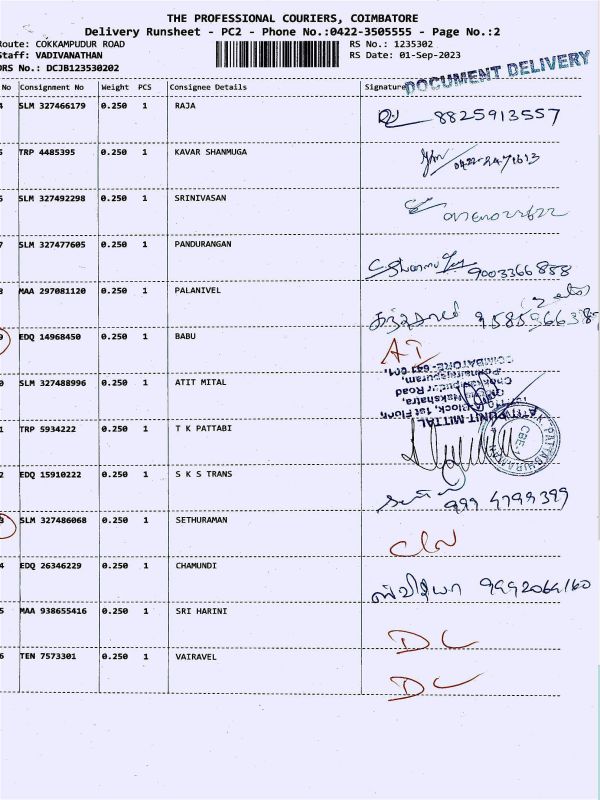 THE PROFESSIONAL COURIERS, COIMBATORE
Delivery Runsheet - PC2 - Phone No.:0422-3505555 - Page No.:2
Route: COKKAMPUDUR ROAD
RS No.: 1235302
Staff: VADIVANATHAN
RS Date: 01-Sep-2023
DRS No.: DCJB123530202
DOCUMENT DELIVERY
No Consignment No Weight PCS Consignee Details Signature
4 SLM 327466179 0.250 1 RAJA 8825913557
5 TRP 4485395 0.250 1 KAVAR SHANMUGA
6 SLM 327492298 0.250 1 SRINIVASAN
7 SLM 327477605 0.250 1 PANDURANGAN 9003366858
8 MAA 297081120 0.250 1 PALANIVEL
9 EDQ 14968450 0.250 1 BABU AT
0 SLM 327488996 0.250 1 ATIT MITAL
COIMBATORE - 641 001.
Chokkampudur Road
A Block, 1st Floor
1 TRP 5934222 0.250 1 T K PATTABI
CBE-1
2 EDQ 15910222 0.250 1 S K S TRANS 999 4799399
3 SLM 327486068 0.250 1 SETHURAMAN
4 EDQ 26346229 0.250 1 CHAMUNDI 9992064160
5 MAA 938655416 0.250 1 SRI HARINI DC
6 TEN 7573301 0.250 1 VAIRAVEL DC